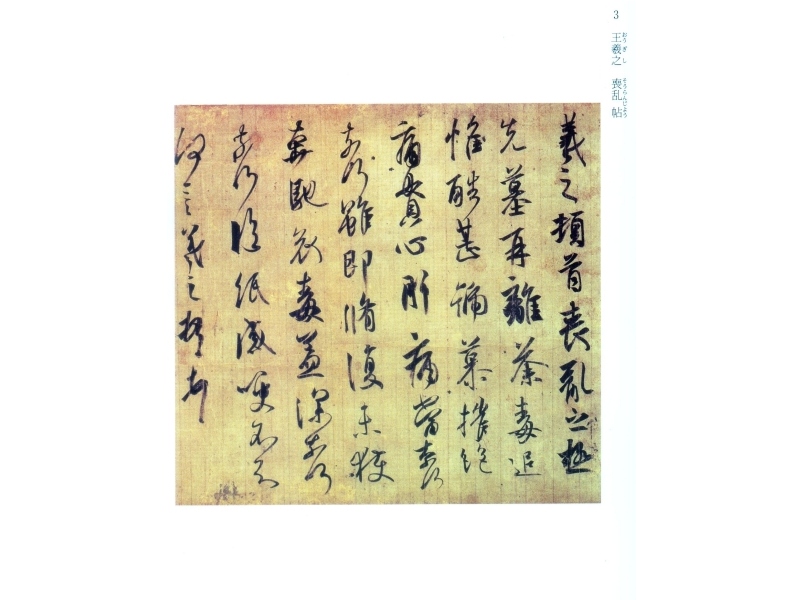 3 王羲之 喪乱帖
おうぎし そうらんじょう
羲之頓首喪亂之極
先墓再離荼毒追
惟酷甚號慕摧絶
痛貫心肝痛當奈何
奈何雖即脩復未獲
奔馳哀毒益深奈何
奈何臨紙感哽不知
何言羲之頓首頓首